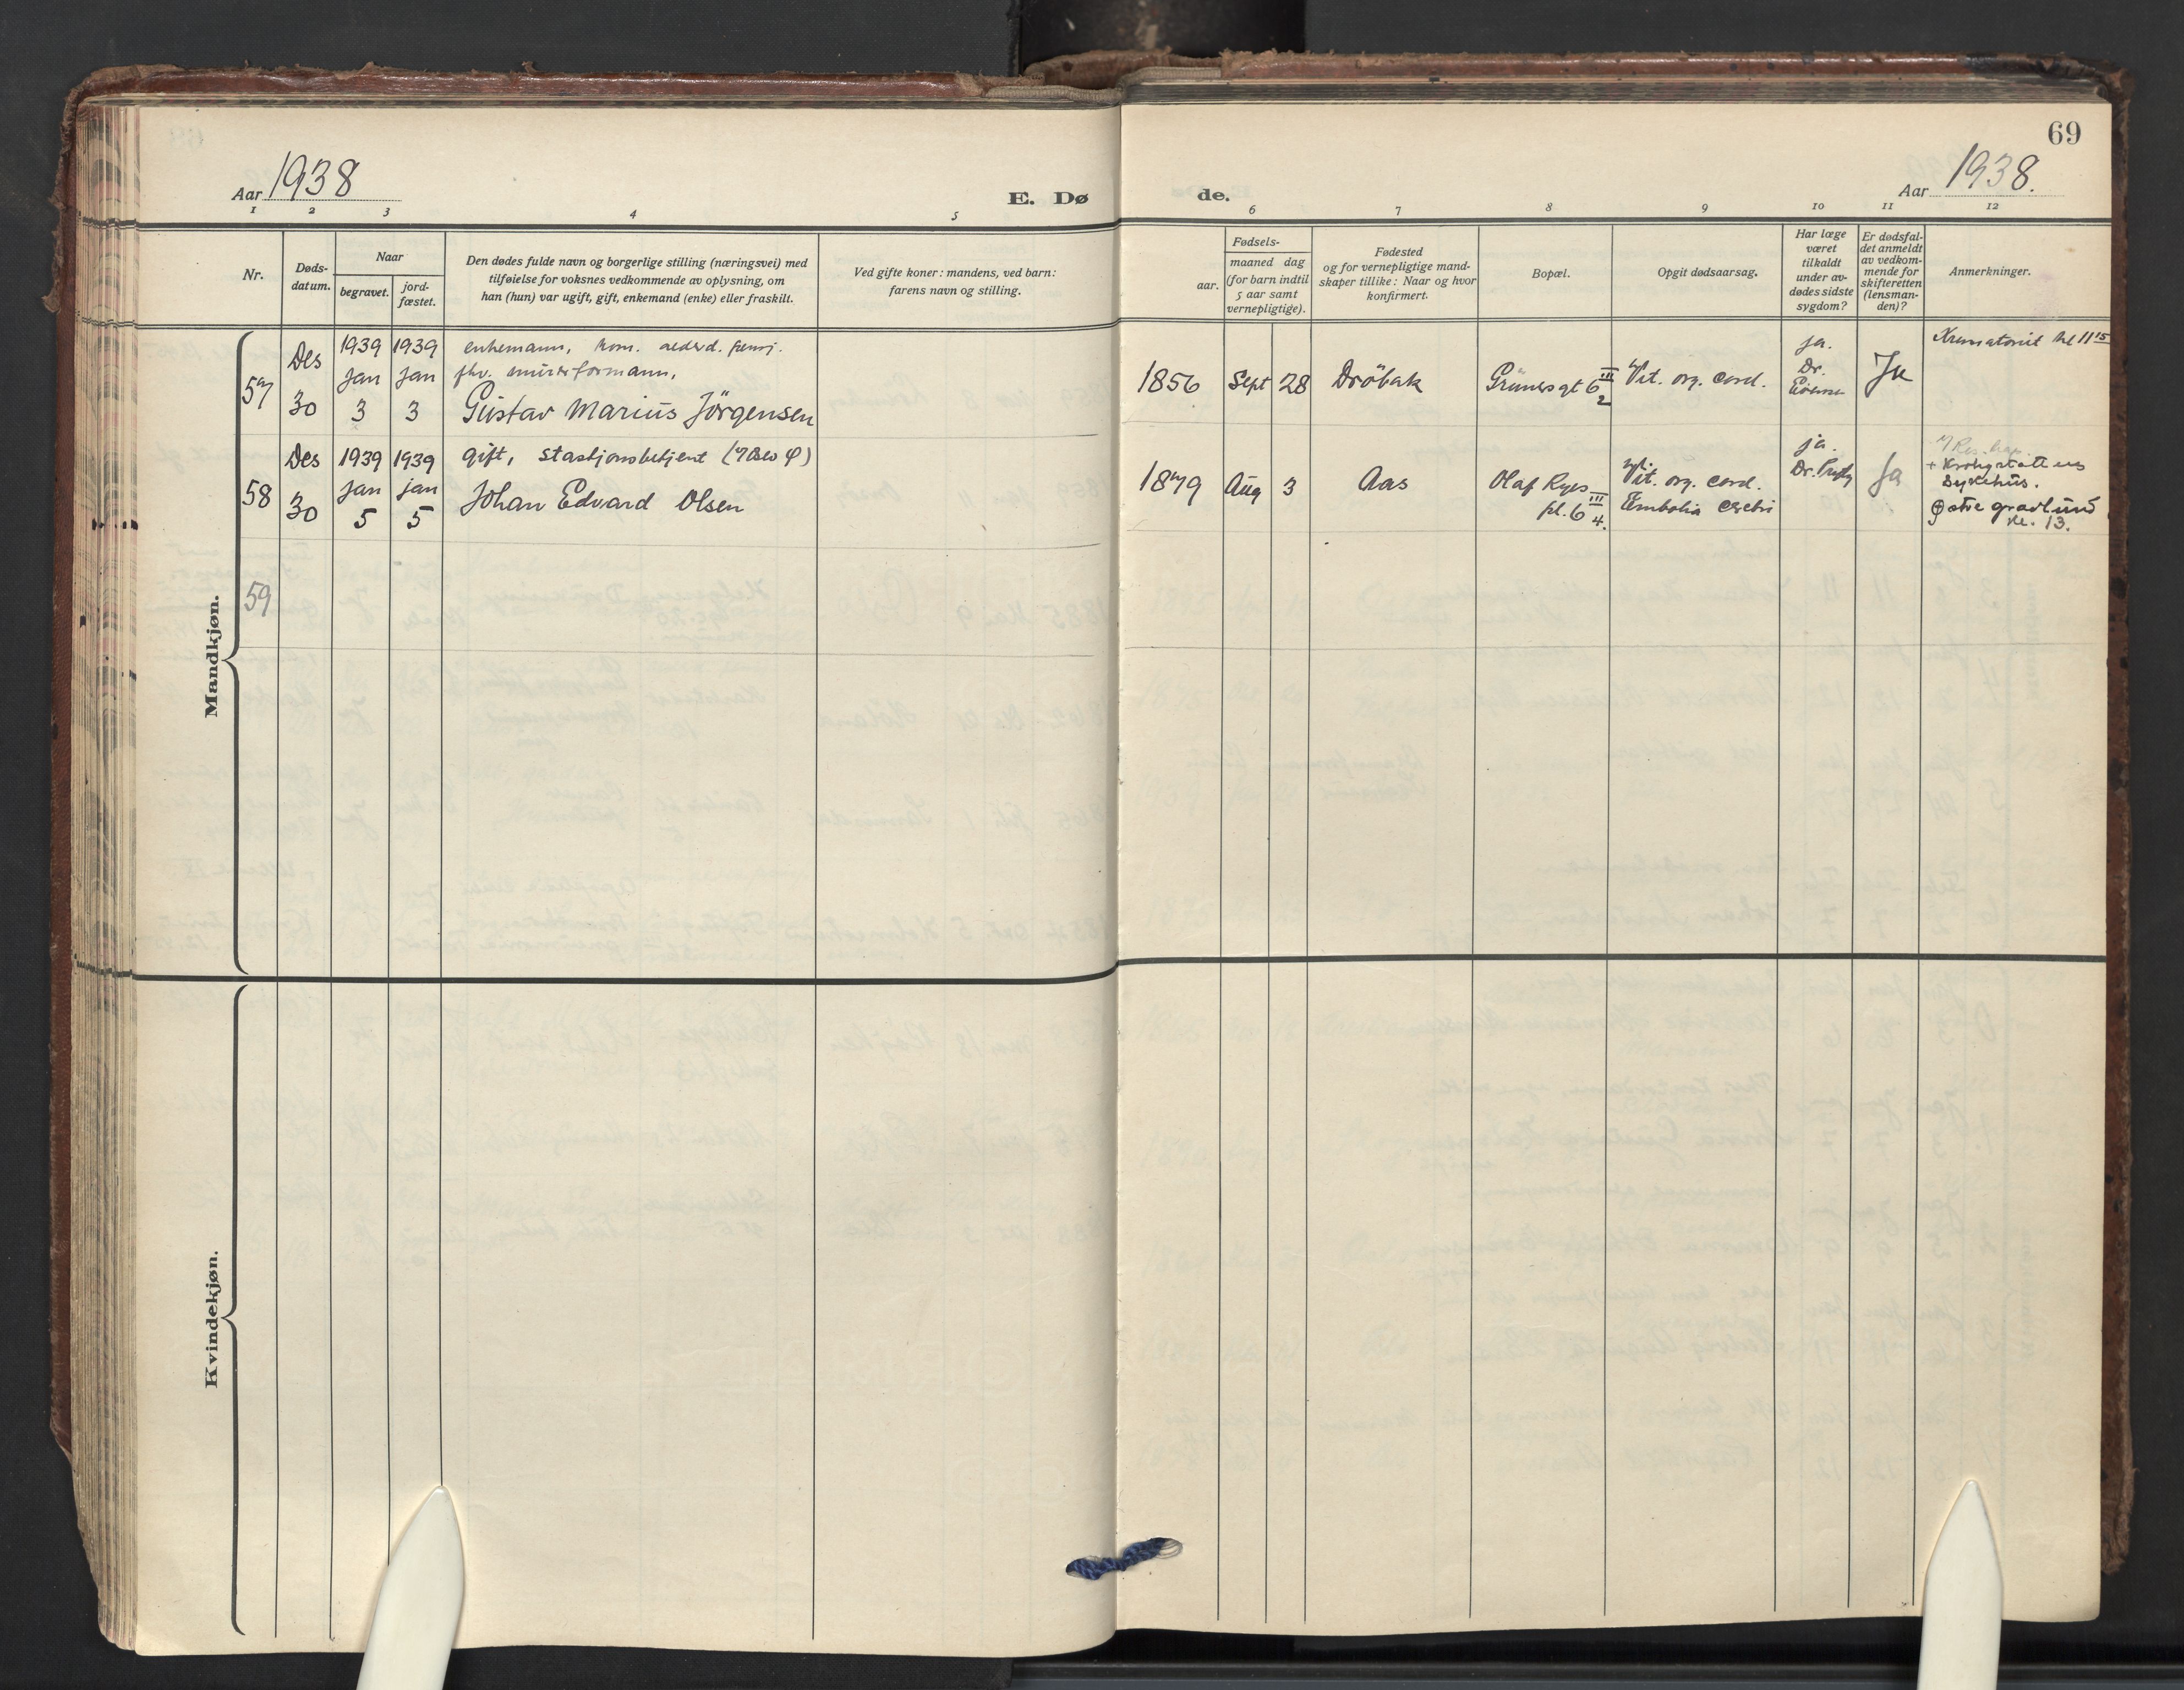 69
Aar 1938
E. Dø
de.
Aar 1938.
1 2 3 4 5
6 7 8 9 10 11 12
Nr.
Døds-
datum.
Naar
begravet.
jord-
fæstet.
Den dødes fulde navn og borgerlige stilling (næringsvei) med
tilføielse for voksnes vedkommende av oplysning, om
han (hun) var ugift, gift, enkemand (enke) eller fraskilt.
Ved gifte koner: mandens, ved barn:
farens navn og stilling.
Fødsels-
aar.
maaned dag
(for barn indtil
5 aar samt
vernepligtige).
Fødested
og for vernepligtige mand-
skaper tillike: Naar og hvor
konfirmert.
Bopæl.
Opgit dødsaarsag.
Har læge
været
tilkaldt
under av-
dødes sidste
sygdom?
Er dødsfal-
det anmeldt
av vedkom-
mende for
skifteretten
(lensman-
den)?
Anmerkninger.
Mandkjøn.
57
Des
30
1939
Jan
3
1939
Jan
3
enkemann, kom.
fhv. murerformann,
Gustav Marius Jörgensen
1856
Sept
28
Dröbak
Grünersgt 6 III
2
Vit. org. cord.
ja.
Dr.
Ja
Krematoriet kl 11 15
58
Des
30
1939
Jan
5
1939
jan
5
gift, stasjonsbetjent
Johan Edvard Olsen
1879
Aug
3
Aas
Olaf Ryes
pl. 6 III
4.
Vit. org. cord.
Embolia cerebri
ja.
Dr.
Ja
+ Krohgstöttens
Sykehus.
Østre gravlund
kl. 13.
59
Kvindekjøn.